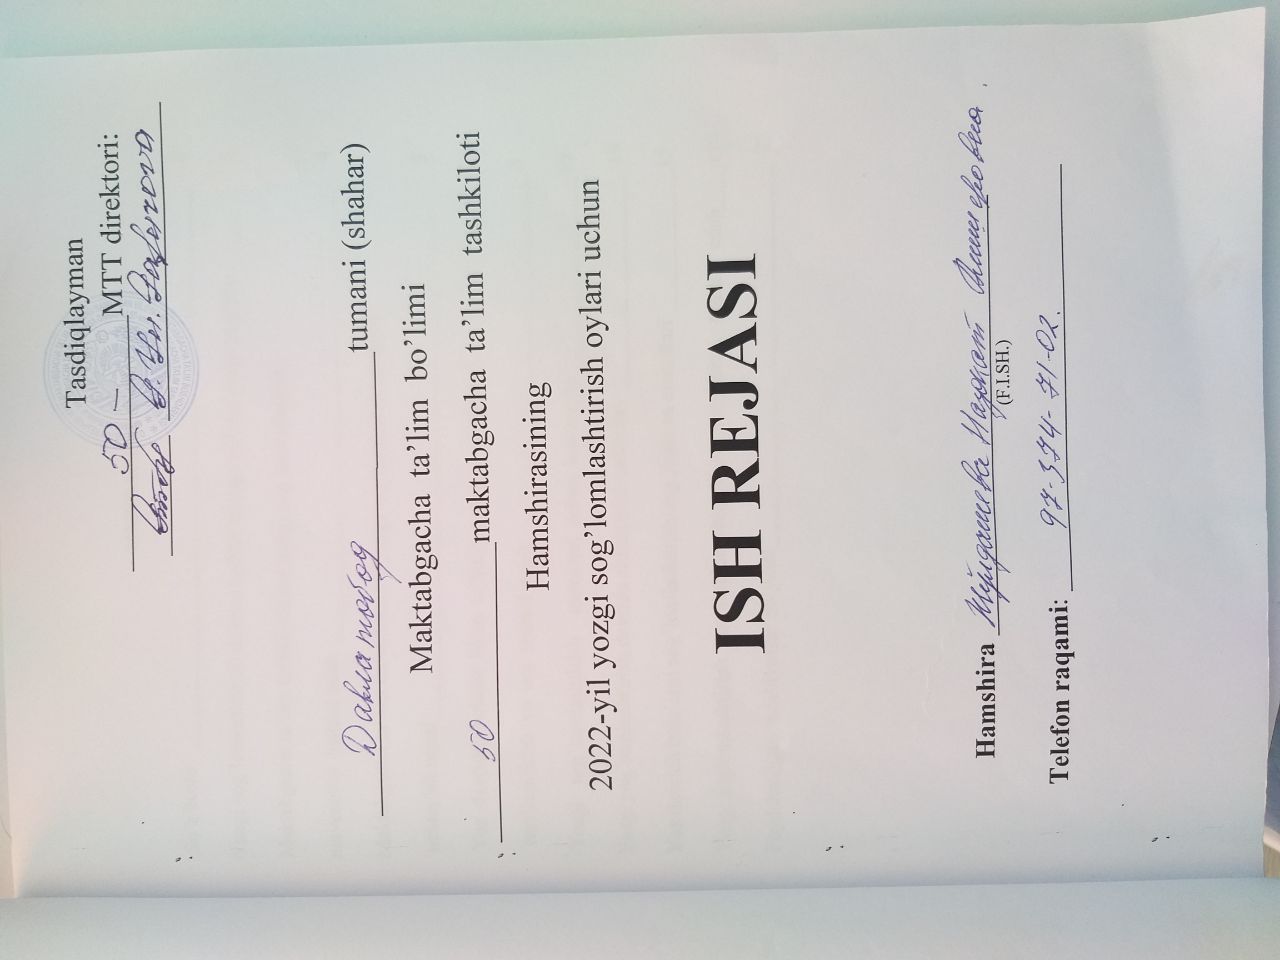 Tasdiqlayman
50 – MTT direktori:
Давлатобод tumani (shahar)
Maktabgacha ta’lim bo’limi
50 maktabgacha ta’lim tashkiloti
Hamshirasining
2022-yil yozgi sog’lomlashtirish oylari uchun
ISH REJASI
Hamshira
(F.I.SH.)
Telefon raqami: 97-374-71-02.